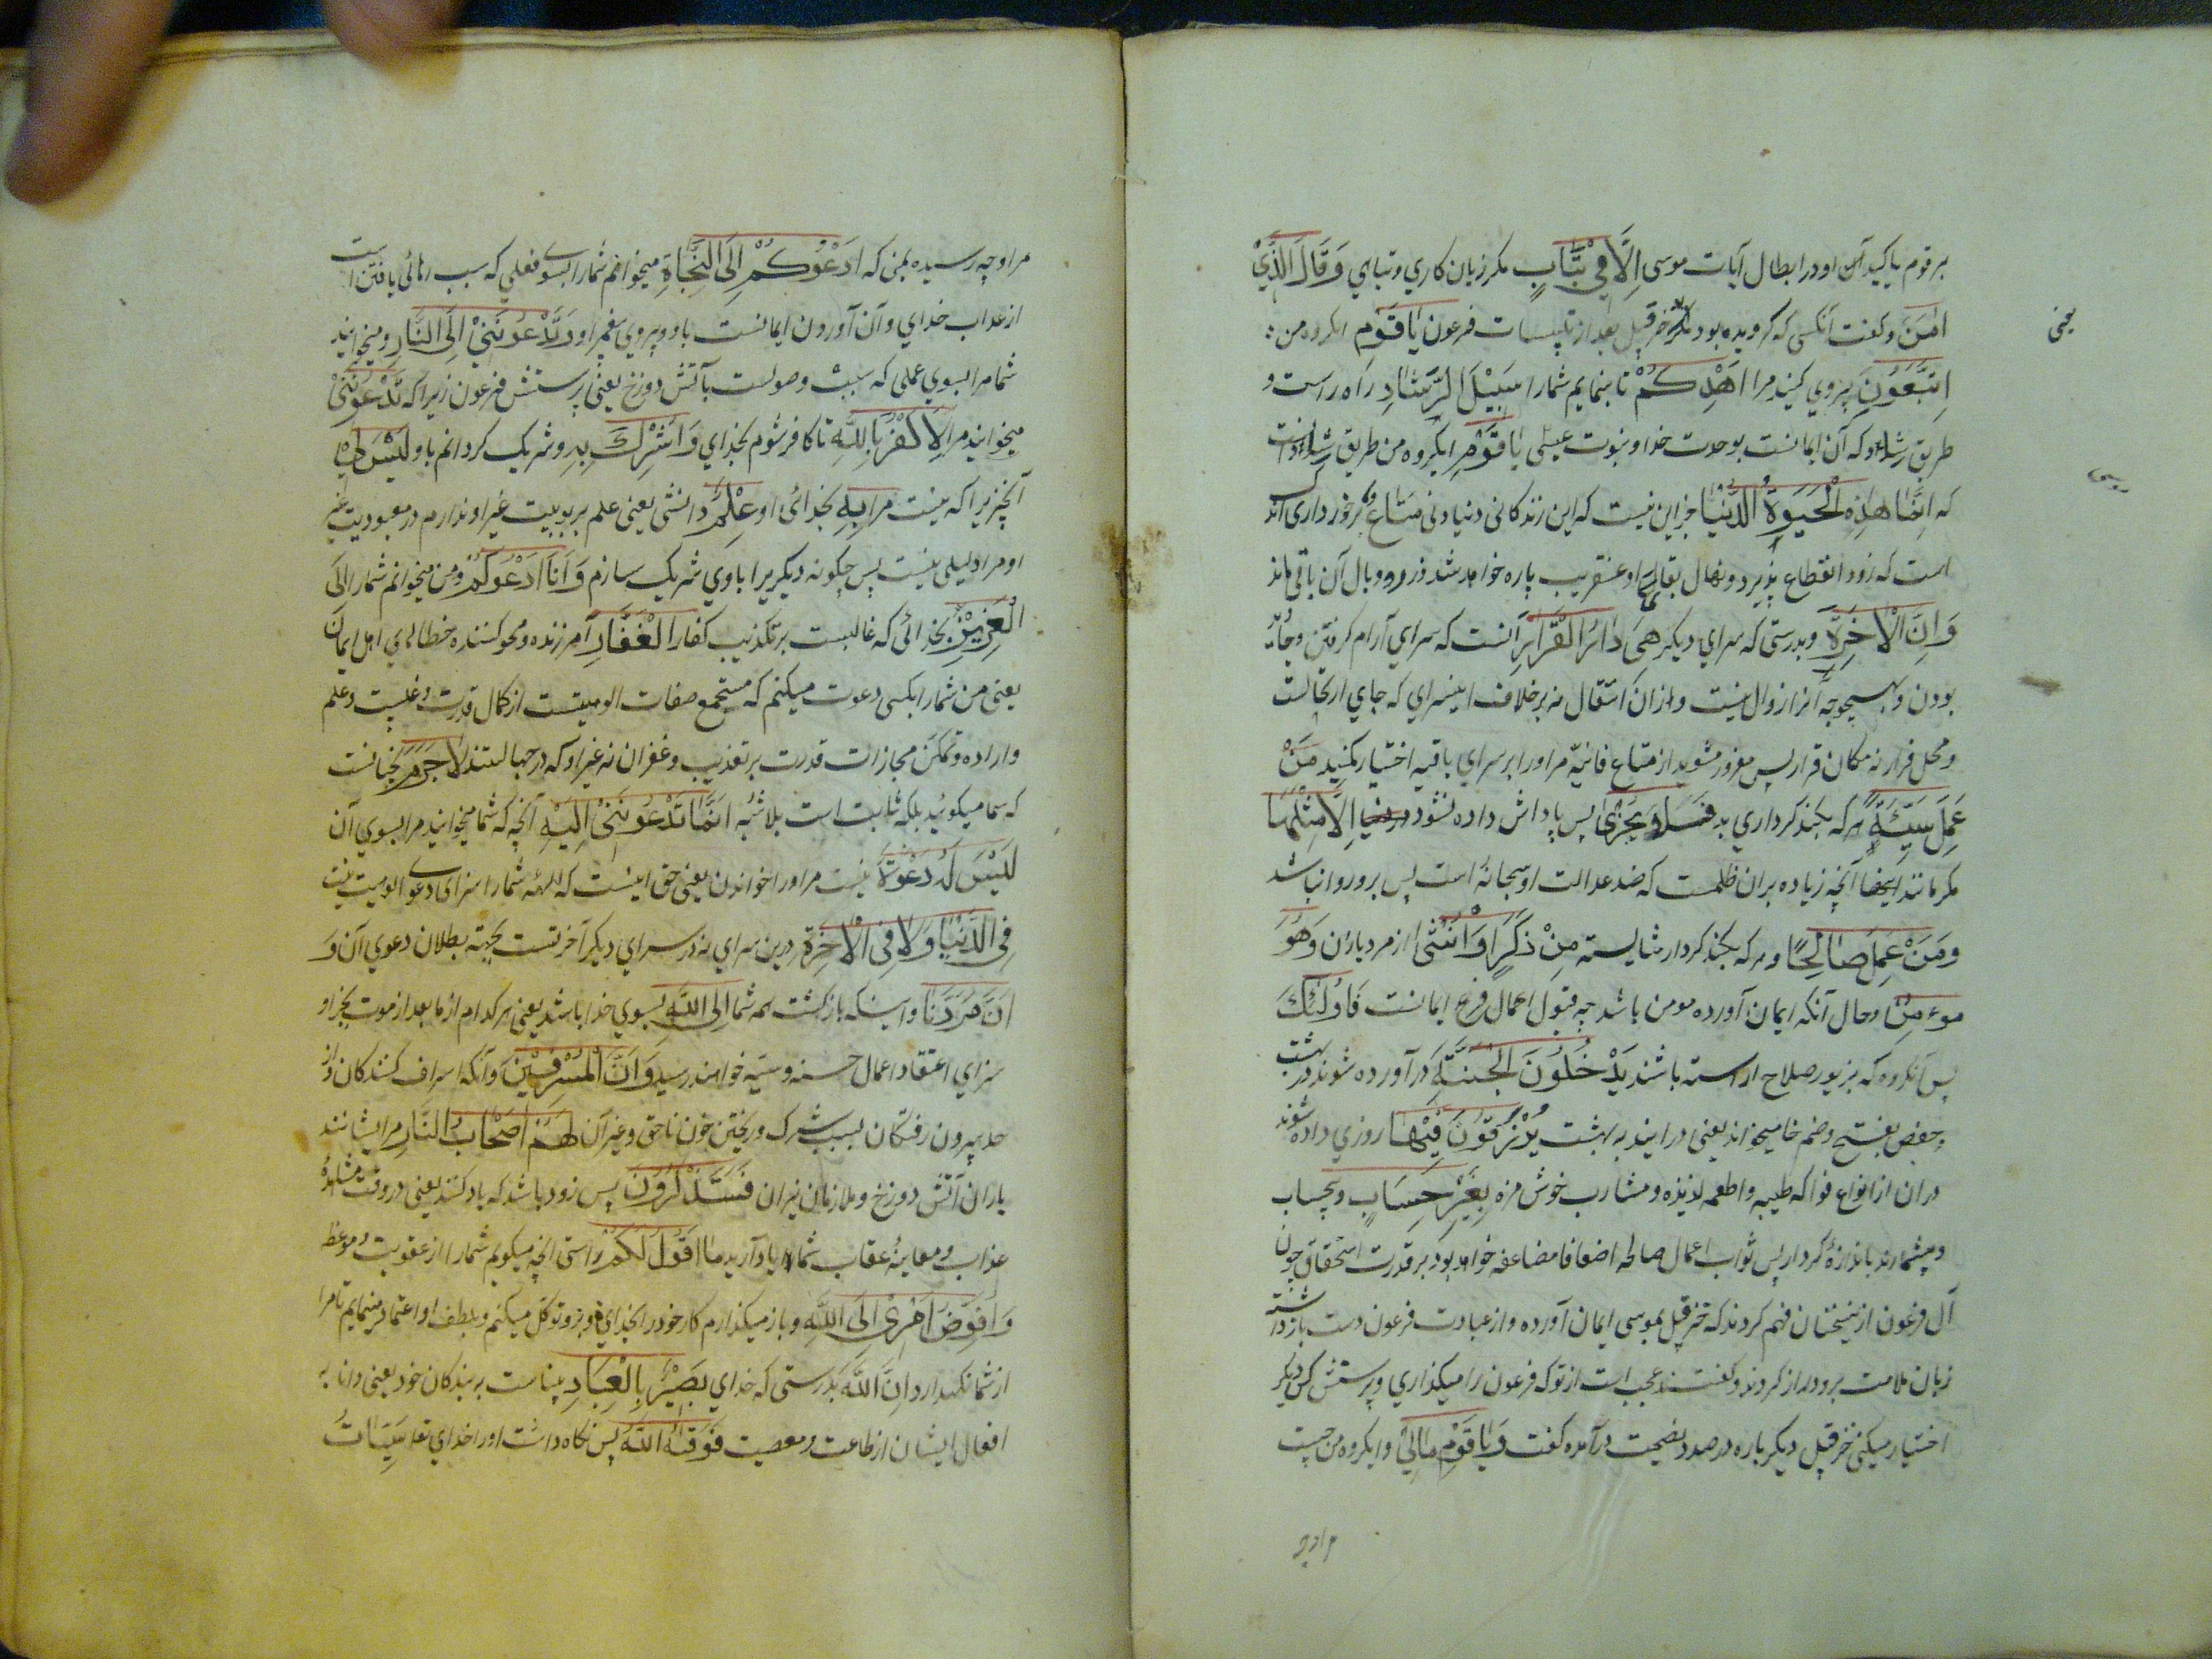 بر قوم یا کید او در ابطال آیات موسی اِلَّا فِی تَبَابٍ مکر زیان کاری و تباهی وَقَالَ الَّذِیْ
اٰمَنَ و کفت آنکسی که کرویده بود یعنی خرقیل بعد از تلبیسات فرعون یَا قَوْمِ ایکروه من
اِتَّبِعُونِ پیروی کنید مرا اَهْدِكُمْ تا بنمایم شما را سَبِیْلَ الرَّشَادِ راه راست و
طریق رشاد که آن ایمانست بوحدت خدا و نبوت عیسی یَا قَوْمِ ایکروه من طریق رشاد آنست
که اِنَّمَا هٰذِهِ الْحَیٰوةُ الدُّنْیَا جز این نیست که این زندکانی دنیا دنی مَتَاعٌ برخورداری اند
است که زود انقطاع پذیرد و نهال بقای او عنقریب پاره خواهد شد و زر و وبال آن باقی ماند
وَاِنَّ الْاٰخِرَةَ و بدرستی که سرای دیکر هِیَ دَارُ الْقَرَارِ آنست که سرای آرام کرفتن و جاوید
بودن و بهیچوجه آنرا زوال نیست و از ان انتقال نه بر خلاف اینسرای که جای ارتحالست
و محل فرار نه مکان قرار پس مغرور مشوید از متاع فانیه مر او را بر سرای باقیه اختیار مکنید مَنْ
عَمِلَ سَیِّئَةً هر که بکند کرداری بد فَلَا یُجْزٰی پس پاداش داده نشود اِلَّا مِثْلَهَا
مکر مانند آن ایضا آنچه زیاده بران ظلمست که ضد عدالت او سبحانه است پس برو روا نباشد
وَمَنْ عَمِلَ صَالِحًا و هر که بکند کردار شایسته مِنْ ذَكَرٍ اَوْ اُنْثٰی از مرد یا زن وَهُوَ
مُوءمِنٌ و حال آنکه ایمان آورده مومن باشد چه قبول اعمال فرع ایمانست فَاُولٰئِكَ
پس آنکروه که بزیور صلاح اراسته باشند یَدْخُلُونَ الْجَنَّةَ در آورده شوند در بهشت
و حفص بفتح و ضم خا میخواند یعنی در ایند به بهشت یُرْزَقُونَ فِیْهَا روزی داده شوند
در ان از انواع فواکه طیبه و اطعمه لذیذه و مشارب خوش مزه بِغَیْرِ حِسَابٍ و بیحساب
و بیشمار نه باندازۀ کردار پس ثواب اعمال صالحه اضعافا مضاعفه خواهد بود بر قدرت استحقاق چون
آل فرعون از ین سخنان فهم کردند که خرقیل بموسی ایمان آورده و از عبادت فرعون دست باز داشته
زبان ملامت برو دراز کردند و کفتند عجب است از تو که فرعون را میکذاری و پرستش کس دیکر
اختیار میکنی خرقیل دیکر باره در صدد نصیحت درآمده کفت وَیَا قَوْمِ مَالِیْ و ایکروه من چیست
مرا و چه
یعنی
مرا و چه رسیده بمن که اَدْعُوكُمْ اِلَی النَّجَاةِ میخوانم شما را بسوی فعلی که سبب رهائی یافتن است
از عذاب خدای و آن آوردن ایمانست باو و پیروی پیغمبر او وَتَدْعُونَنِیْ اِلَی النَّارِ و میخوانید
شما مرا بسوی عملی که سبب وصولست بآتش دوزخ یعنی پرستش فرعون زیرا که تَدْعُونَنِیْ
میخوانید مرا لِاَكْفُرَ بِاللّٰهِ تا کافر شوم بخدای وَاُشْرِكَ بِهِ و شریک کردانم باو مَا لَیْسَ لِیْ
آنچیزیرا که نیست مرا بِهِ بخدائی او عِلْمٌ دانشی یعنی علم بربوبیت غیر او ندارم در معبودیت غیر
او مرا دلیلی نیست پس چکونه دیکریرا با وی شریک سازم وَاَنَا اَدْعُوكُمْ و من میخوانم شما را اِلَی
الْعَزِیْزِ بخدائی که غالبست بر تکذیب کفار الْغَفَّارِ آمرزنده و محو کننده خطاهای اهل ایمان
یعنی من شما را بکسی دعوت میکنم که مستجمع صفات الوهیتست از کمال قدرت و غلبه و علم
و اراده و تمکن مجازات قدرت بر تعذیب و غفران نه غیر او که در جهالتند لَا جَرَمَ نچنانست
که شما میکوئید بلکه ثابت است بلا شبه اَنَّمَا تَدْعُونَنِیْ اِلَیْهِ آنچه که شما میخوانید مرا بسوی آن
لَیْسَ لَهُ دَعْوَةٌ نیست مر او را خواندن یعنی حق اینست که الهه شما را سزای دعوی الوهیت نیست
فِی الدُّنْیَا وَلَا فِی الْاٰخِرَةِ درین سرای نه در سرای دیکر آخرتست بجهته بطلان دعوی آن وَ
اَنَّ مَرَدَّنَا و اینکه بازکشت همه شما اِلَی اللّٰهِ بسوی خدا باشد یعنی هر کدام از ما بعد از موت بجزاء
سزای اعتقاد اعمال حسنه و سیئه خواهند رسید وَاَنَّ الْمُسْرِفِیْنَ و آنکه اسراف کنندکان و از
حد بیرون رفتکان بسبب شرک و ریختن خون ناحق و غیر آن هُمْ اَصْحَابُ النَّارِ مر ایشانند
یاران آتش دوزخ و ملازمان نیران فَسَتَذْكُرُونَ پس زود باشد که یاد کنند یعنی در وقت مشاهدۀ
عذاب و معاینۀ عقاب شما را یاد آرید مَا اَقُولُ لَكُمْ راستی انچه میکویم شما را از عقوبت و موعظه
وَاُفَوِّضُ اَمْرِیْ اِلَی اللّٰهِ و باز میکذارم کار خود را بخدای و برو توکل میکنم و بلطف او اعتماد مینمایم تا مرا
از شما نکهدارد اِنَّ اللّٰهَ بدرستی که خدای بَصِیْرٌ بِالْعِبَادِ بیناست به بندکان خود یعنی دانا به
افعال ایشان از طاعت و معصیت فَوَقٰهُ اللّٰهُ پس نکاه داشت او را خدای تعا سَیِّئَاتُ